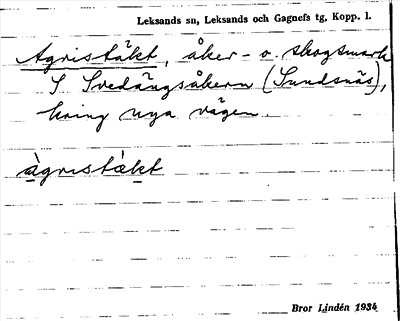 Leksands sn, Leksands och Gagnefs tg, Kopp. l.
Agristäkt, åker- o. skogsmark
S Svedängsåkern (Sundsnäs),
kring nya vägen.
àgristàkt
Bror Lindén 1934